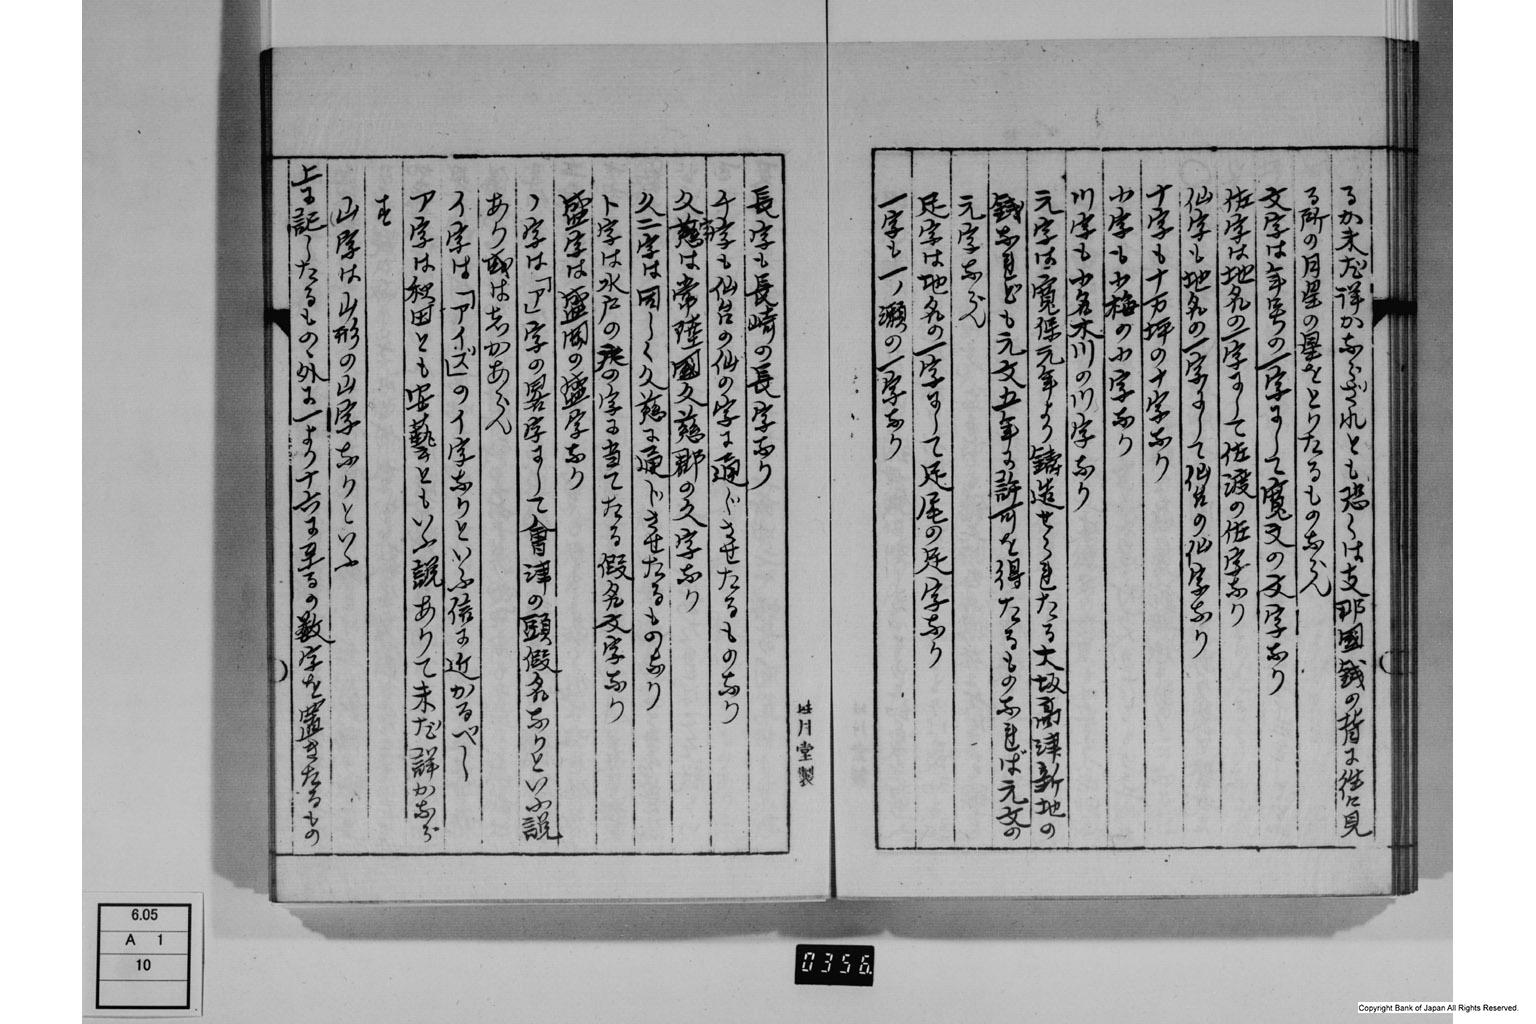 るか未だ詳かならざれとも恐らくは支那國錢の背に往々見
る所の月星の星をとりたるものならん
文字は年号の一字にして寛文の文字なり
佐字は地名の一字にして佐渡の佐字なり
仙字も地名の一字にして仙台の仙字なり
十字も十万坪の十字なり
小字も小梅の小字なり
川字も小名木川の川字なり
元字は寛保元年より鑄造せられたる大坂高津新地の
錢なれども元文五年に許可を得たるものなれば元文の
元字ならん
足字は地名の一字にして足尾の足字なり
一字も一ノ瀬の一字なり
長字も長崎の長字なり
千字も仙台の仙の字に通じさせたるものなり
久慈字は常陸國久慈郡の久字なり
久二字は同しく久慈に通じさせたるものなり
ト字は水戸の字に当てたる假名文字なり
盛字は盛岡の盛字なり
ノ字は「ア」字の畧字にして會津の頭假名なりといふ説
あり或はしかあらん
イ字は「アイズ」のイ字なりといふ信に近かるべし
ア字は秋田とも安藝ともいふ説ありて未だ詳かなら
す
山字は山形の山字なりといふ
上に記したるものゝ外に一より十六に至るの數字を置きたるもの
月堂製
6.05
A 1
10
0356
Copyright Bank of Japan All Rights Reserved.